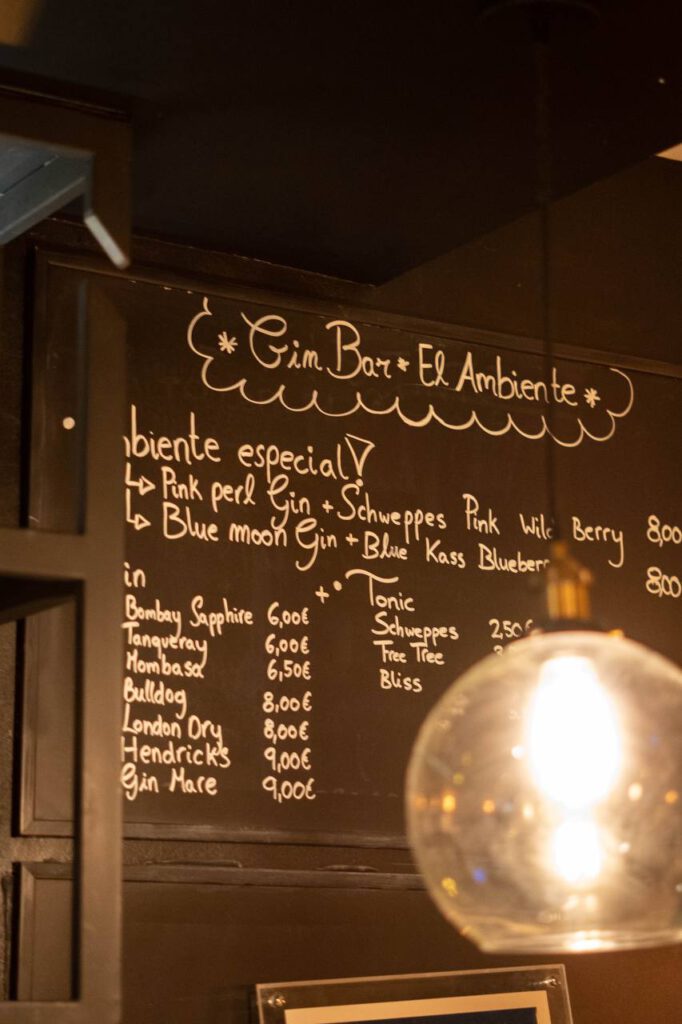 * Gin Bar * El Ambiente *
biente especial!
Pink perl Gin + Schweppes Pink Wild Berry 8,00
Blue moon Gin + Blue Kass Blueberr 8,00€
in
Bombay Sapphire 6,00€
Tanqueray 6,00€
Mombasa 6,50€
Bulldog 8,00€
London Dry 8,00€
Hendrick's 9,00€
Gin Mare 9,00€
+ Tonic
Schweppes 2,50€
Free Tree
Bliss